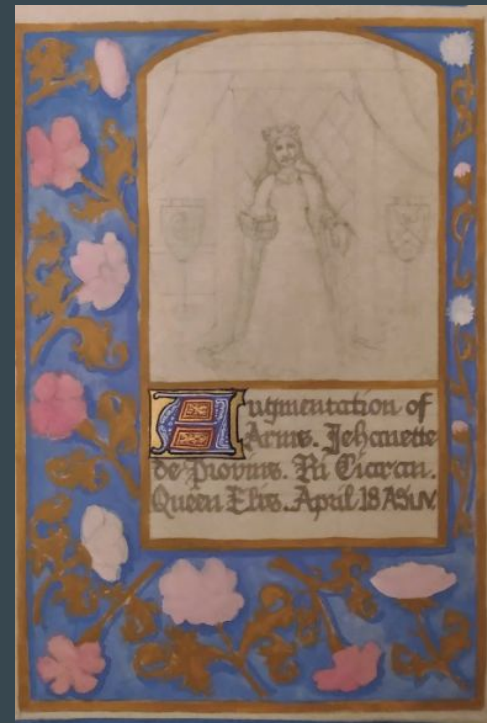 Augmentation of
Arms. Jehanette
de Provins. Ri Ciaran.
Queen Elis. April 18 AS LIV